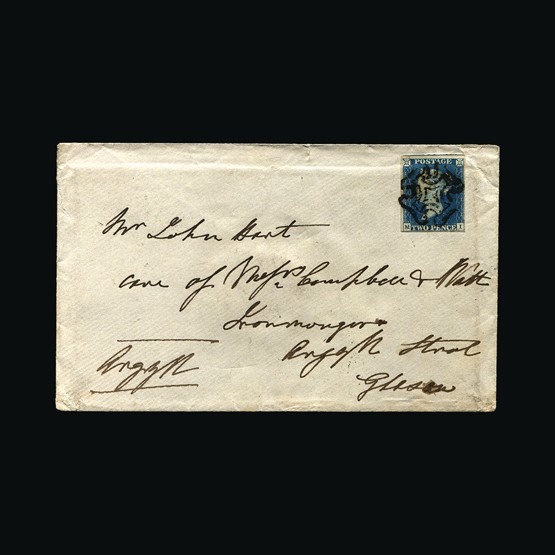 POSTAGE
TWO PENCE
Mr John Hart
care of Messrs Campbell &
Ironmongers
Argyle Street
Argyle